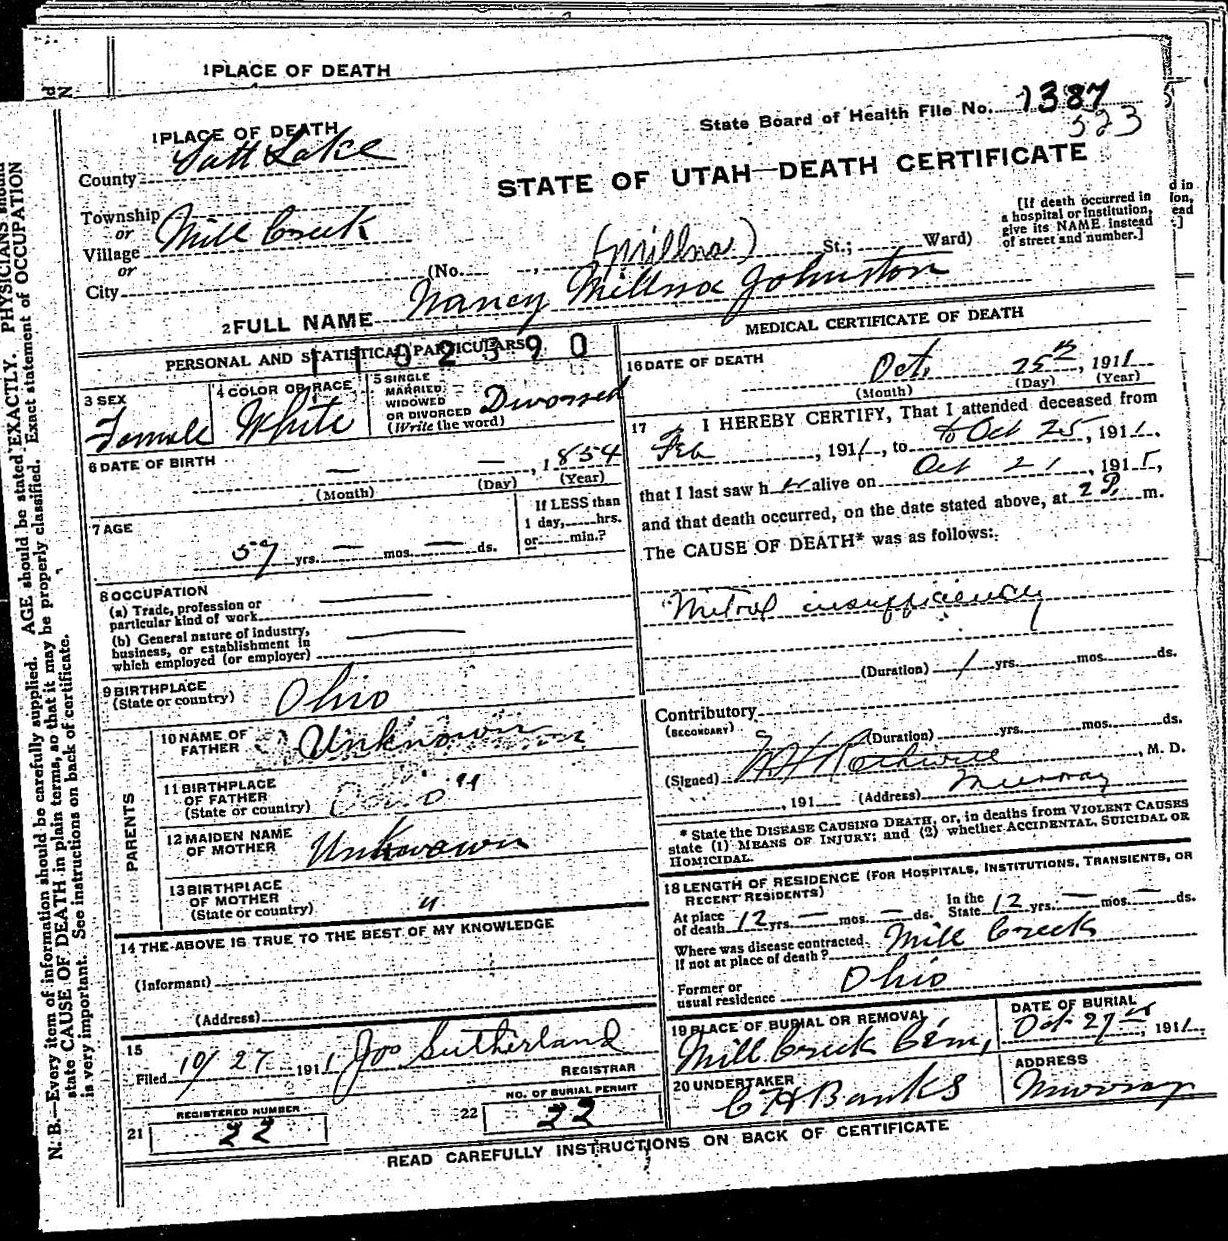 1 PLACE OF DEATH
1 PLACE OF DEATH
State Board of Health File No. 1387
523
County Salt Lake
STATE OF UTAH—DEATH CERTIFICATE
Township
or
Village Mill Creek
or
City
(No. , (Millna) St.; Ward)
[If death occurred in
a hospital or institution,
give its NAME instead
of street and number.]
2 FULL NAME Nancy Millna Johnston
PERSONAL AND STATISTICAL PARTICULARS
3 SEX
Female
4 COLOR OR RACE
White
5 SINGLE
MARRIED
WIDOWED
OR DIVORCED
(Write the word)
Divorsed
6 DATE OF BIRTH
— — , 1854
(Month) (Day) (Year)
7 AGE
57 yrs. — mos. — ds.
If LESS than
1 day, hrs.
or min.?
8 OCCUPATION
(a) Trade, profession or
particular kind of work
(b) General nature of industry,
business, or establishment in
which employed (or employer)
9 BIRTHPLACE
(State or country) Ohio
PARENTS
10 NAME OF
FATHER Unknown
11 BIRTHPLACE
OF FATHER
(State or country) "
12 MAIDEN NAME
OF MOTHER Unknown
13 BIRTHPLACE
OF MOTHER
(State or country) "
14 THE ABOVE IS TRUE TO THE BEST OF MY KNOWLEDGE
(Informant)
(Address)
15
Filed 10/27 1911 Jos Sutherland
REGISTRAR
21 REGISTERED NUMBER
22
22 NO. OF BURIAL PERMIT
22
MEDICAL CERTIFICATE OF DEATH
16 DATE OF DEATH
Oct. 25th, 1911
(Month) (Day) (Year)
17 I HEREBY CERTIFY, That I attended deceased from
Feb , 1911, to to Oct 25, 1911,
that I last saw her alive on Oct 21, 191
and that death occurred, on the date stated above, at 2 P. m.
The CAUSE OF DEATH* was as follows:
Mitral insufficiency
(Duration) 1 yrs. mos. ds.
Contributory
(SECONDARY)
(Duration) yrs. mos. ds.
(Signed) , M. D.
, 191 (Address) Murray
* State the DISEASE CAUSING DEATH, or, in deaths from VIOLENT CAUSES
state (1) MEANS OF INJURY; and (2) whether ACCIDENTAL, SUICIDAL OR
HOMICIDAL.
18 LENGTH OF RESIDENCE (FOR HOSPITALS, INSTITUTIONS, TRANSIENTS, OR
RECENT RESIDENTS)
At place
of death 12 yrs. — mos. — ds.
In the
State 12 yrs. — mos. — ds.
Where was disease contracted
if not at place of death? Mill Creek
Former or
usual residence Ohio
19 PLACE OF BURIAL OR REMOVAL
Mill Creek Cem,
DATE OF BURIAL
Oct 27th, 1911
20 UNDERTAKER
C H Banks
ADDRESS
Murray
READ CAREFULLY INSTRUCTIONS ON BACK OF CERTIFICATE
N. B.—Every item of information should be carefully supplied. AGE should be stated EXACTLY. PHYSICIANS should
state CAUSE OF DEATH in plain terms, so that it may be properly classified. Exact statement of OCCUPATION
is very important. See instructions on back of certificate.